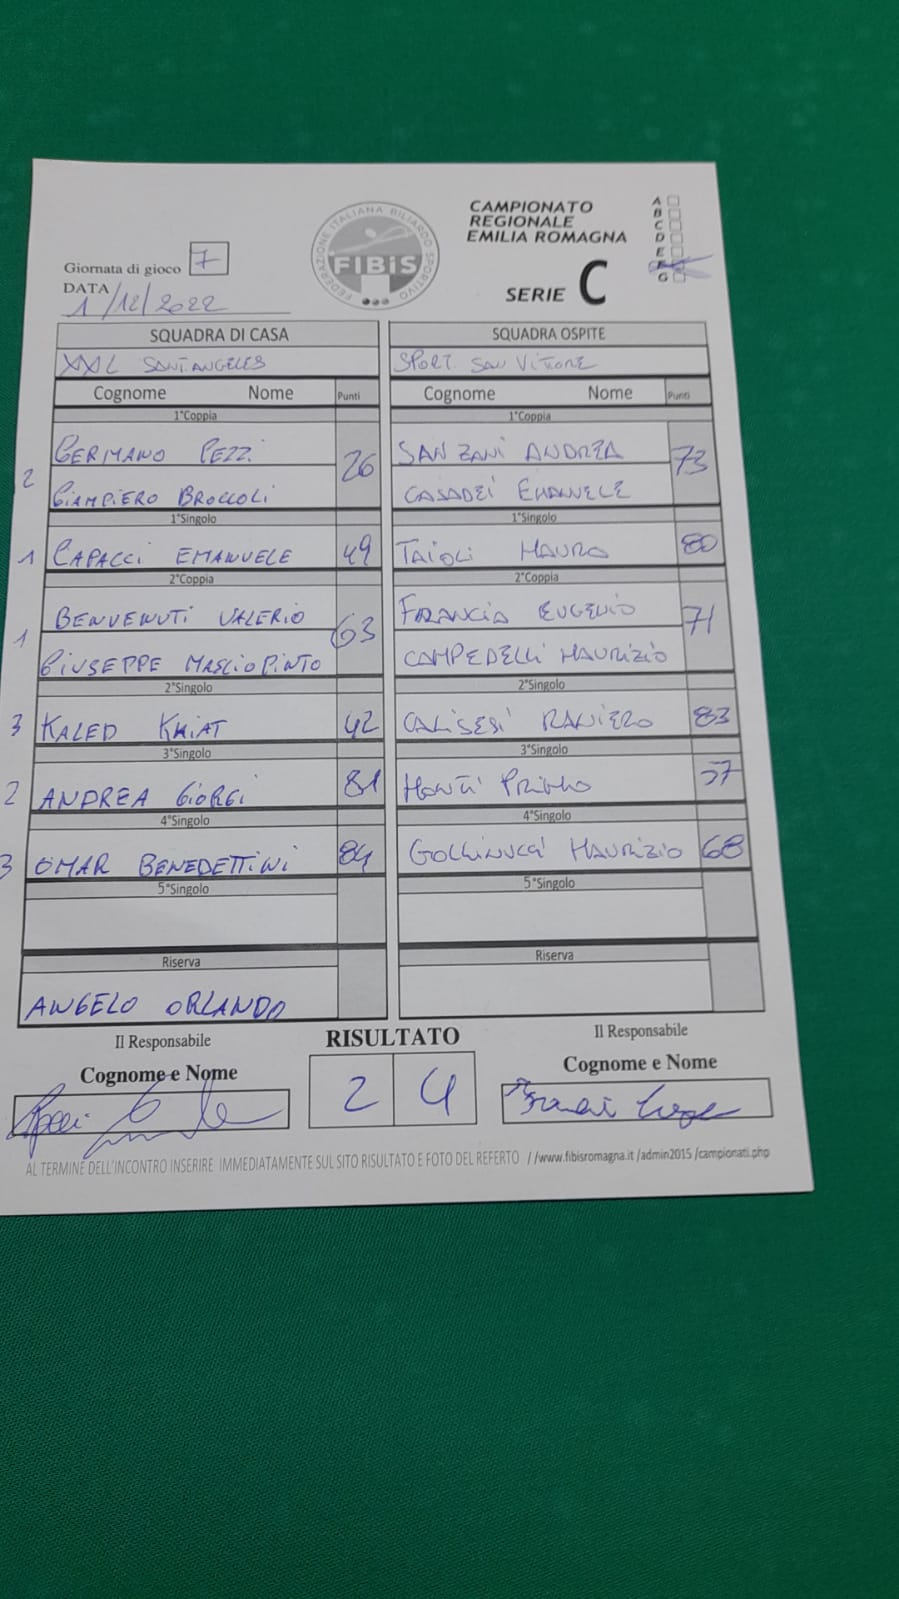 CAMPIONATO
REGIONALE
EMILIA ROMAGNA
SERIE C
A
B
C
D
E
F
G
FEDERAZIONE ITALIANA BILIARDO SPORTIVO
FIBiS
Giornata di gioco 7
DATA 1/12/2022
SQUADRA DI CASA
XXL SANT.ANGELES
SQUADRA OSPITE
SPORT. SAN VITTORE
Cognome Nome Punti
Cognome Nome Punti
1°Coppia
2 GERMANO PEZZI 26
GIAMPIERO BROCCOLI
1°Coppia
SANZANI ANDREA 73
CASADEI EMANUELE
1°Singolo
1 CAPACCI EMANUELE 49
1°Singolo
TAIOLI MAURO 80
2°Coppia
1 BENVENUTI VALERIO 63
GIUSEPPE MASCIOPINTO
2°Coppia
FRANCIA EUGENIO 71
CAMPEDELLI MAURIZIO
2°Singolo
3 KALED KHIAT 42
2°Singolo
CALISESI RANIERO 83
3°Singolo
2 ANDREA GIORGI 81
3°Singolo
MONTI PRIMO 57
4°Singolo
3 OMAR BENEDETTINI 84
4°Singolo
GOLLINUCCI MAURIZIO 68
5°Singolo
5°Singolo
Riserva
ANGELO ORLANDO
Riserva
Il Responsabile
Cognome e Nome
RISULTATO
2 4
Il Responsabile
Cognome e Nome
AL TERMINE DELL'INCONTRO INSERIRE IMMEDIATAMENTE SUL SITO RISULTATO E FOTO DEL REFERTO //www.fibisromagna.it /admin2015 /campionati.php